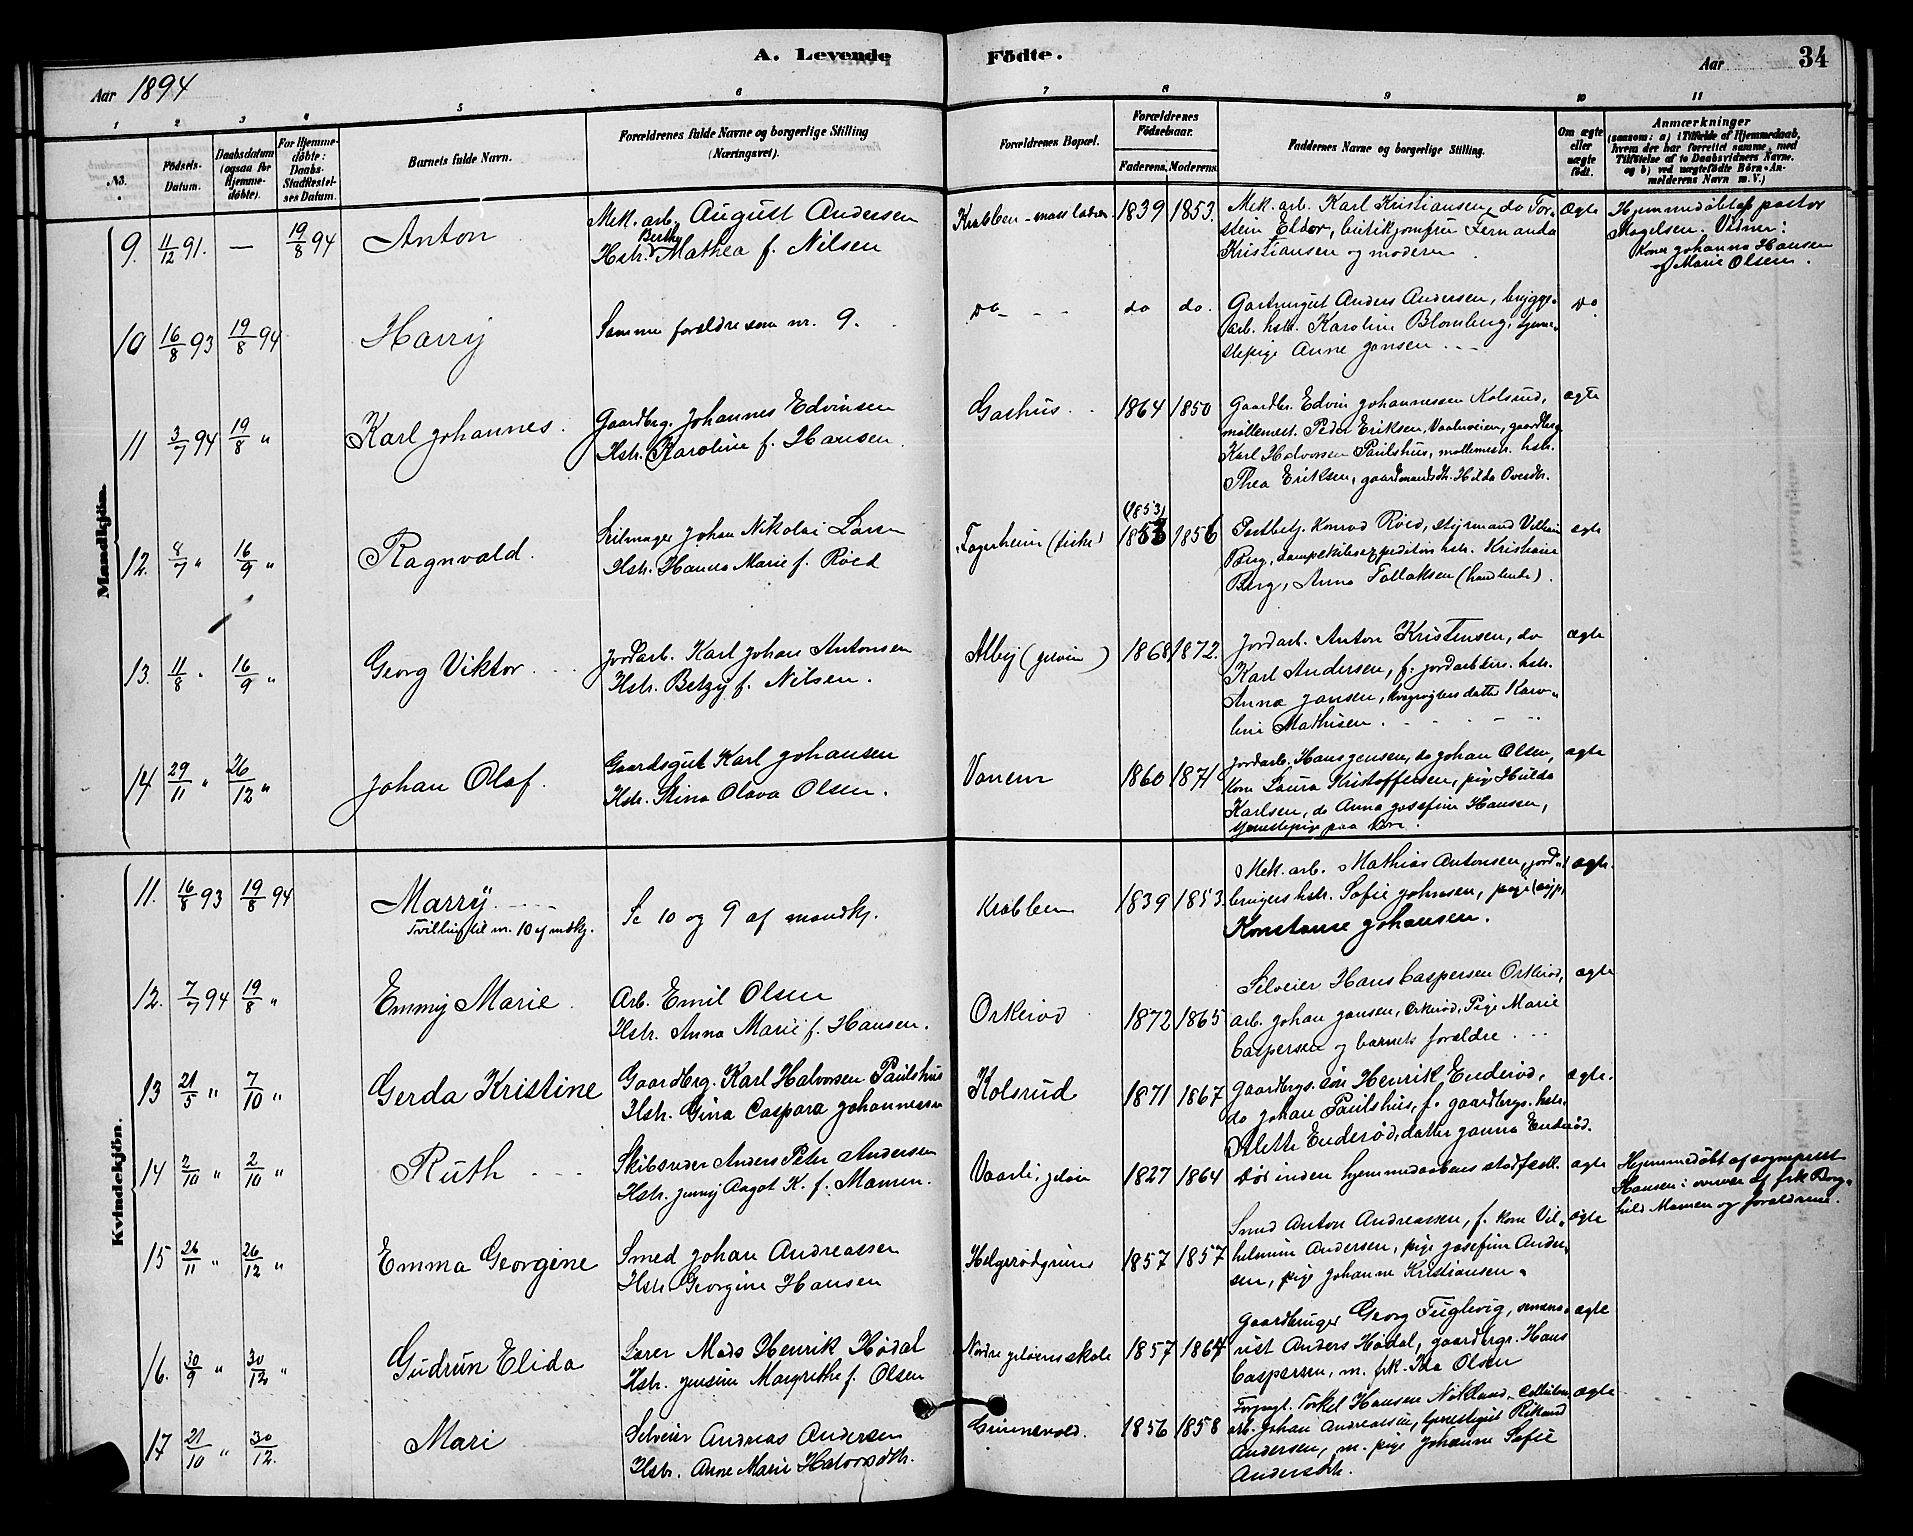 A. Levende Fødte.
34
Aar 1894
Aar
1 2 3 4 5 6 7 8 9 10 11
No.
Fødsels-Datum.
Daabsdatum (ogsaa for Hjemmedøbte).
For Hjemmedøbte: Daabs-Stadfæstelses Datum.
Barnets fulde Navn.
Forældrenes fulde Navne og borgerlige Stilling (Næringsvei).
Forældrenes Bopæl.
Forældrenes Fødselsaar.
Faderens. Moderens.
Faddernes Navne og borgerlige Stilling.
Om ægte eller uægte født.
Anmærkninger
(saasom: a) i Tilfælde af Hjemmedaab,
hvem der har forrettet samme, med
Tilføielse af to Daabsvidners Navne.
og b) ved uægtefødte Børn Anmelderens Navn m. V.)
Mandkjøn.
9. 11/12 91. — 19/8 94 Anton
Mek. arb. August Andersen
Hstr. Berthe Mathea f. Nilsen
Krabben - 1839 1853.
Mek. arb. Karl Kristiansen, do Tor-
stein Eldor, butikjomfru Fernanda
Kristiansen og moderen
Ægte
Hjemmedøbt af pastor
Magelsen. Vidner:
Kone Johanna Hansen
og Marie Olsen.
10 16/8 93 19/8 94 Harry
Samme forældre som nr. 9.
do - - do do.
Gartnergut Anders Andersen, brygge-
arb. hstr. Karoline Blomberg, tjene-
stepige Anne Jansen
Do
11 3/7 94 19/8 " Karl Johannes.
Gaardbrg. Johannes Edvinsen
Hstr. Karoline f. Hansen.
Gashus. 1864 1850
Gaardbr. Edvin Johannessen Kolsrud,
møllemest. Peder Eriksen, Vaalerveien, gaardbrg.
Karl Halvorsen Paulshus, møllemestr. hstr.
Thea Eriksen, gaardmandsdtr. Hilda
ægte
12. 8/7 " 16/9 " Ragnvald.
Seilmager Johan Nikolai Larsen
Hstr. Hanna Marie f. Røed
Fagerheim (1853) 1853 1856
Postbetj. Konrad Røed, styrmand Vilhelm
Berg, dampskibsexpeditør hstr. Kristiane
Berg, Anna Tollaksen
ægte
13. 11/8 " 16/9 " Georg Viktor
Jordarb. Karl Johan Antonsen
Hstr. Betzy f. Nilsen.
Alby (Jeløen) 1868 1872.
Jordarb. Anton Kristensen, do
Karl Andersen, f. jordarbeiders. hstr.
Anna Jansen, datter Karo-
line Mathisen.
ægte
14 29/11 " 26/12 " Johan Olaf.
Gaardsgut Karl Johansen
Hstr. Stina Olava Olsen.
Vanem 1860 1871
Jordarb. Hans Jensen, do Johan Olsen,
kone Laura Kristoffersen, pige Hulda
Karlsen, do Anna Josefine Hansen,
tjenestepige paa
ægte
Kvindekjøn.
11. 16/8 93 19/8 94 Marry
Tvilling til nr. 10 af mdkj.
Se 10 og 9 af mandkj.
Krabben 1839 1853.
Mek. arb. Mathias Antonsen, jord-
brugers hstr. Sofie Johnsen, pige
Konstanse Johansen.
ægte
12. 7/7 94 19/8 " Emmy Marie
Arb. Emil Olsen
Hstr. Anna Marie f. Hansen.
Orkerød 1872 1865
Selveier Hans Caspersen Orkerød,
arb. Johan Jansen, Orkerød, Pige Marie
Caspersen og barnets forældre
ægte
13 21/5 " 7/10 " Gerda Kristine
Gaardbrg. Karl Halvorsen Paulshus
Hstr. Gina Caspara Johannessen
Kolsrud 1871 1867
Gaardbrgs. søn Henrik Enderød,
do Johan Paulshus, f. gaardbrgs. hstr.
Alette Enderød, datter Janna Enderød.
ægte.
14 2/10 " 2/10 " Ruth
Skibsreder Anders Peter Andersen
Hstr. Jenny Aagot K. f. Mamen.
Vaarli, Jeløen 1827 1864
Død inden hjemmedaabens stadfæst.
ægte
Hjemmedøbt af sogneprest
Hansen i overvær af frk Borg-
hild Mamen og forældrene.
15 26/11 " 26/12 " Emma Georgine
Smed Johan Andreassen
Hstr. Georgine Hansen
Helgerødgrund 1857 1857
Smed Anton Andreassen, f. kone Vil-
helmine Andersen, pige Josefine Ander-
sen, pige Johanne Kristiansen.
ægte
16. 30/9 " 30/12 " Gudrun Elida
Lærer Mads Henrik Hødal
Hstr. Jensine Margrethe f. Olsen
Nordre Jeløens skole 1857 1864
Gaardbruger Georg Fuglevig, semina-
rist Anders Hødal, gaardbrgr. Hans
Caspersen, m. frk. Ida Olsen
ægte
17 21/10 " 30/12. Mari
Selveier Andreas Andersen
Hstr. Anne Marie Halvorsdtr.
Grimnesvold. 1856 1858
Torkel Hansen Nøkland, Cellulose-
arb. Johan Andreassen, tjenestegut Rikard
Andersen, m. pige Johanne Sofie
Andersdtr.
ægte